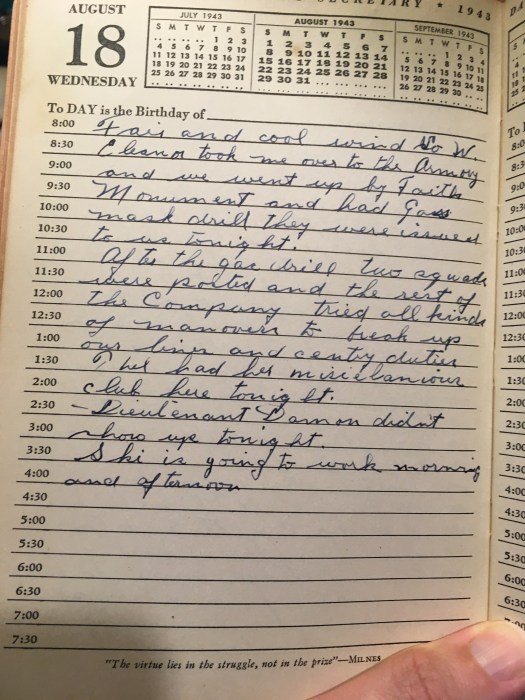 SECRETARY * 1943
AUGUST
18
WEDNESDAY
JULY 1943
S M T W T F S
.. .. .. .. 1 2 3
4 5 6 7 8 9 10
11 12 13 14 15 16 17
18 19 20 21 22 23 24
25 26 27 28 29 30 31
AUGUST 1943
S M T W T F S
1 2 3 4 5 6 7
8 9 10 11 12 13 14
15 16 17 18 19 20 21
22 23 24 25 26 27 28
29 30 31 .. .. .. ..
SEPTEMBER 1943
S M T W T F S
.. .. .. 1 2 3 4
5 6 7 8 9 10 11
12 13 14 15 16 17 18
19 20 21 22 23 24 25
26 27 28 29 30 .. ..
To DAY is the Birthday of
8:00 Fair and cool wind So W.
8:30 Eleanor took me over to the Armory
9:00 and we went up by Faith
9:30 Monument and had Gass
10:00 mask drill they were issued
10:30 to us tonight.
11:00 After the gas drill two squads
11:30 were posted and the rest of
12:00 the Company tried all kinds
12:30 of manovers to break up
1:00 our lines and centry duties
1:30 Phel had her miscelaniour
2:00 club here tonight.
2:30 - Lieutenant Damon didn't
3:00 show up tonight.
3:30 Ski is going to work morning
4:00 and afternoon
4:30
5:00
5:30
6:00
6:30
7:00
7:30
"The virtue lies in the struggle, not in the prize"—MILNES